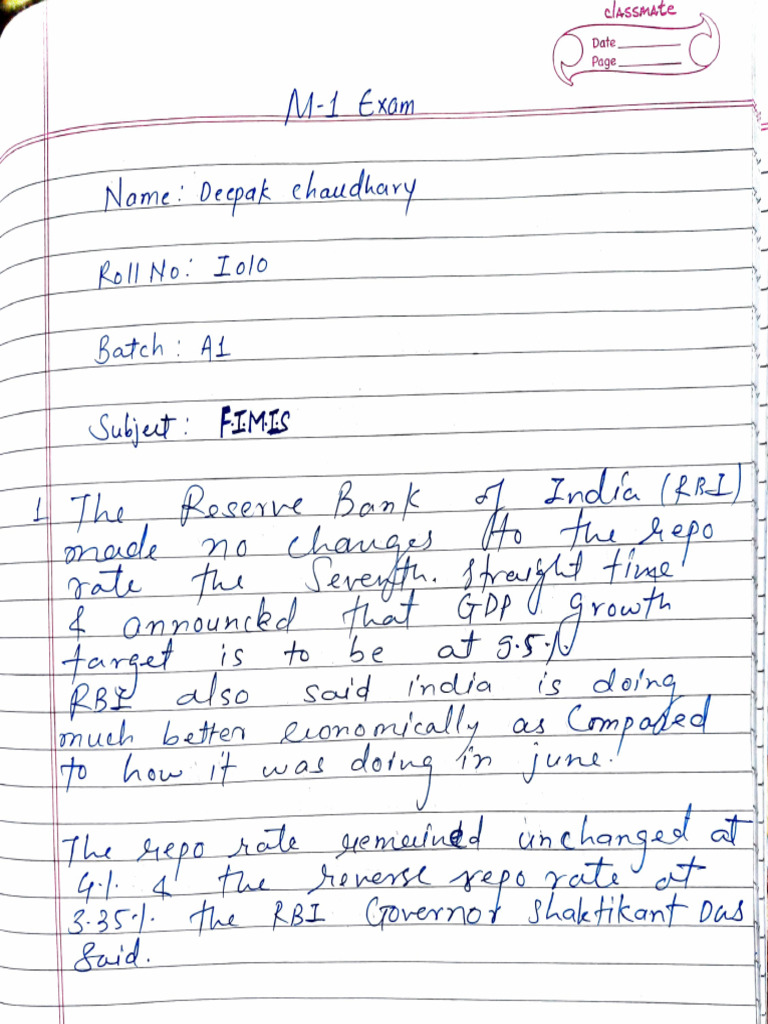 classmate
Date
Page
M-1 Exam
Name: Deepak chaudhary
Roll No: I010
Batch: A1
Subject: F.I.M.I.S
1 The Reserve Bank of India (RBI)
made no changes to the repo
rate the Seventh. straight time
& announcked that GDP growth
target is to be at 9.5%
RBI also said india is doing
much better economically as Compared
to how it was doing in june.
The repo rate remained unchanged at
4% & the reverse repo rate at
3.35%. the RBI Governor Shaktikant Das
Said.